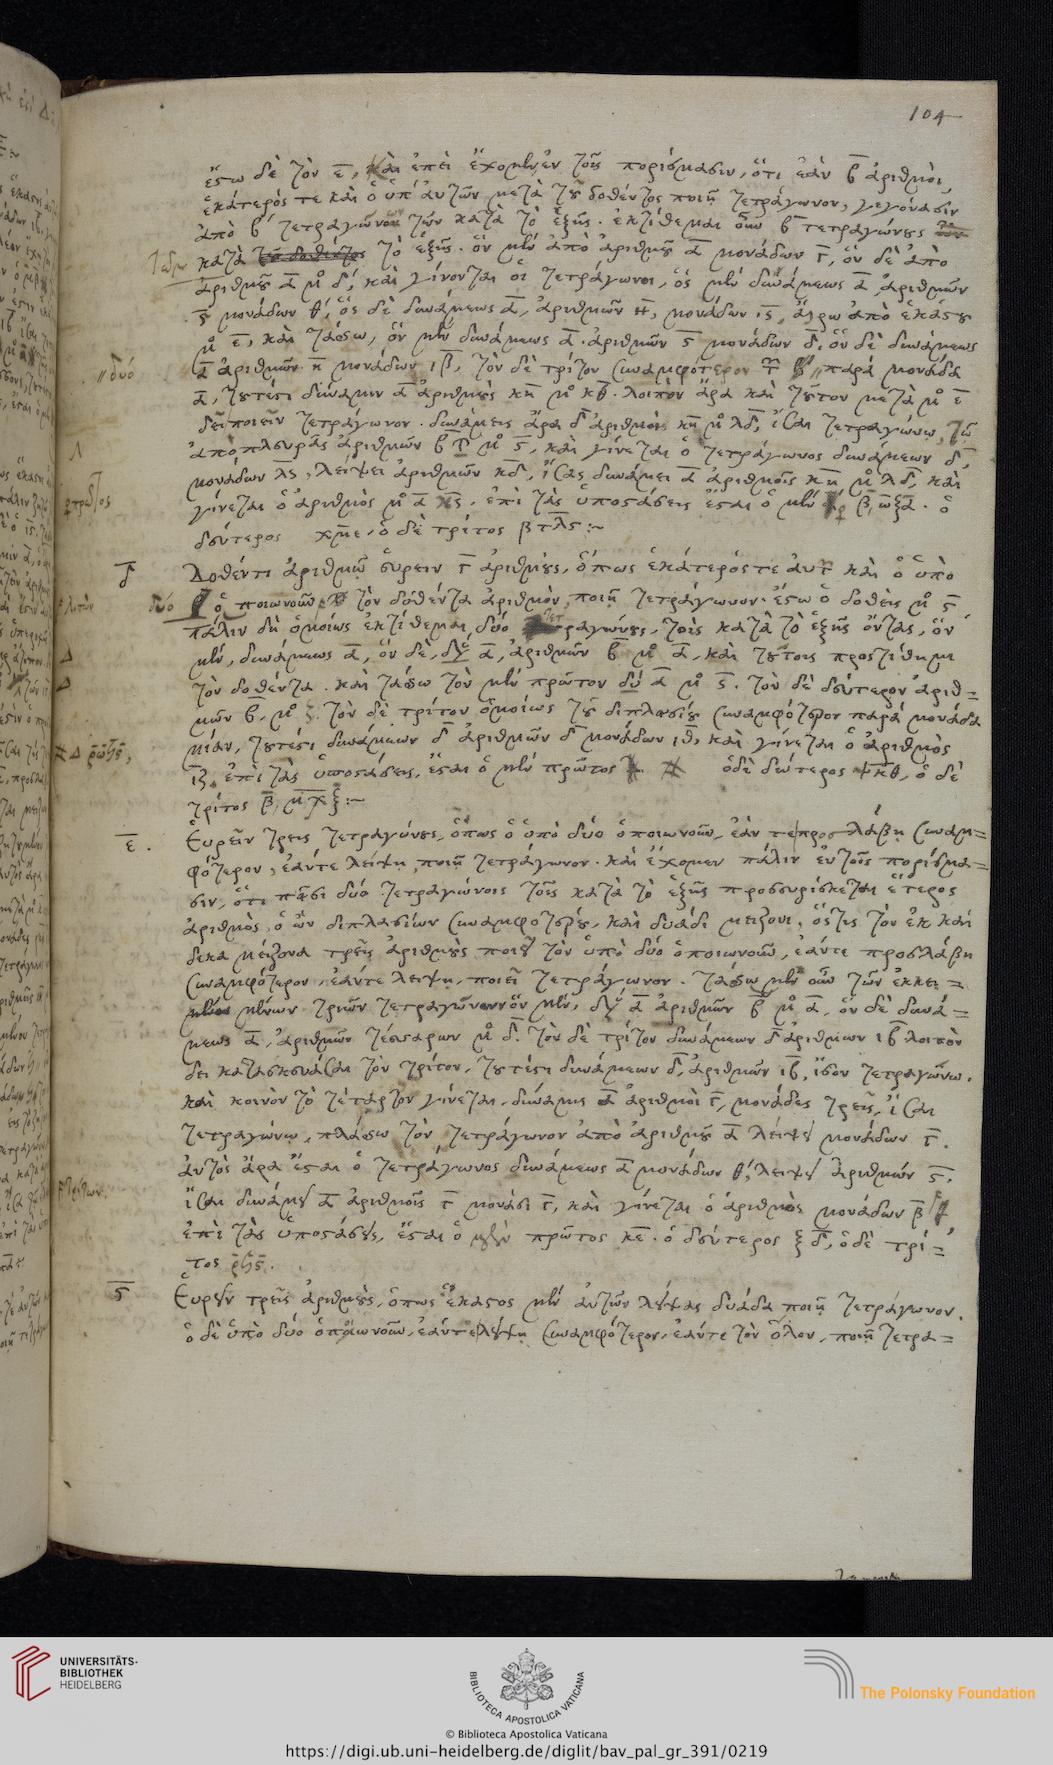 104
ἔστω δὲ τὸν ε̅, καὶ ἐπεὶ ἔχομεν ἐν τοῖς πορίσμασιν, ὅτι ἐὰν β̅ ἀριθμοὶ,
ἑκάτερός τε καὶ ὁ ὑπ' αὐτῶν μετὰ τοῦ δοθέντος ποιῇ τετράγωνον, γεγόνασιν
ἀπὸ β̅ τετραγώνων τῶν κατὰ τὸ ἑξῆς. ἐκτίθεμαι οὖν β̅ τετραγώνους
κατὰ τὸ ἑξῆς. ὃν μὲν ἀπὸ ἀριθμοῦ α̅ μονάδων γ̅, ὃν δὲ ἀπὸ
ἀριθμοῦ α̅ μ̊ δ̅, καὶ γίνονται οἱ τετράγωνοι, ὃς μὲν δυνάμεως α̅, ἀριθμῶν
ϛ̅ μονάδων θ̅, ὃς δὲ δυνάμεως α̅, ἀριθμῶν η̅, μονάδων ιϛ, αἴρω ἀπὸ ἑκάστου
μ̊ ε̅, καὶ τάσσω, ὃν μὲν δυνάμεως α̅ ἀριθμῶν ϛ̅ μονάδων δ̅, ὃν δὲ δυνάμεως
δύο
α̅ ἀριθμῶν η̅ μονάδων ια̅, τὸν δὲ τρίτον συναμφότερον παρὰ μονάδα
α̅, τουτέστι δύναμιν α̅ ἀριθμοὺς κη̅ μ̊ κθ̅. λοιπὸν ἄρα καὶ τοῦτον μετὰ μ̊ ε̅
δεῖ ποιεῖν τετράγωνον. δυνάμεις ἄρα δ̅ ἀριθμοὶ κη̅ μ̊ λδ̅, ἴσαι τετραγώνῳ, τῷ
ἀπὸ πλευρᾶς ἀριθμῶν β̅ μ̊ ϛ̅, καὶ γίνεται ὁ τετράγωνος δυνάμεων δ̅,
μονάδων λϛ, λείψει ἀριθμῶν κδ, ἴσας δυνάμει ἀριθμοῖς κη̅ μ̊ λδ̅, καὶ
γίνεται ὁ ἀριθμὸς μ̊ α̅ κϛ̅. ἐπὶ τὰς ὑποστάσεις ἔσται ὁ μὲν β̅ ωξα̅. ὁ
δεύτερος χμε, ὁ δὲ τρίτος βτλϛ :~
δ̅ Δοθέντι ἀριθμῷ εὑρεῖν γ̅ ἀριθμοὺς, ὅπως ἑκάτερός τε αὐτ καὶ ὁ ὑπὸ
δύο ὁποιωνοῦν τὸν δοθέντα ἀριθμὸν ποιῇ τετράγωνον. ἔστω ὁ δοθεὶς μ̊ ϛ̅
πάλιν δὴ ὁμοίως ἐκτίθεμαι δύο τετραγώνους, τοὺς κατὰ τὸ ἑξῆς ὄντας, ὃν
μὲν, δυνάμεως α̅, ὃν δὲ, δυ̅ α̅, ἀριθμῶν β̅ μ̊ α̅, καὶ τούτοις προστίθημι
τὸν δοθέντα. καὶ τάσσω τὸν μὲν πρῶτον δυ̅ α̅ μ̊ ϛ̅. τὸν δὲ δεύτερον ἀριθ=
μῶν β̅, μ̊ ζ̅. τὸν δὲ τρίτον ὁμοίως τοῦ διπλασίου συναμφότερον παρὰ μονάδα
μίαν, τουτέστι δυνάμεων δ̅ ἀριθμῶν δ̅ μονάδων ιθ̅, καὶ γίνεται ὁ ἀριθμὸς
ιζ̅, ἐπὶ τὰς ὑποστάσεις, ἔσται ὁ μὲν πρῶτος ὁ δὲ δεύτερος ψκθ̅, ὁ δὲ
τρίτος β̅, :~
ε̅. Εὑρεῖν τρεῖς τετραγώνους, ὅπως ὁ ὑπὸ δύο ὁποιωνοῦν, ἐάν τε προσλάβῃ συναμ=
φότερον, ἐάντε λείψῃ, ποιῇ τετράγωνον. καὶ ἔχομεν πάλιν ἐν τοῖς πορίσμα=
σιν, ὅτι πᾶσι δύο τετραγώνοις τοῖς κατὰ τὸ ἑξῆς προσευρίσκεται ἕτερος
ἀριθμὸς, ὁ ὢν διπλασίων συναμφοτέρου, καὶ δυάδι μείζονι. ὅστις τὸν ἐκ καὶ
δεκα μείζονα τρεῖς ἀριθμοὺς ποιεῖ τὸν ὑπὸ δύο ὁποιωνοῦν, ἐάντε προσλάβῃ
συναμφότερον, ἐάντε λειψῃ, ποιεῖ τετράγωνον. τάσσω μὲν οὖν τῶν ἐκκει=
μένων τριῶν τετραγώνων ὃν μὲν, δυ̅ α̅ ἀριθμῶν β̅ μ̊ α̅, ὃν δὲ δυνά=
μεως α̅, ἀριθμῶν τέσσαρων μ̊ δ̅. τὸν δὲ τρίτον δυνάμεων δ̅ ἀριθμῶν ιβ̅ λοιπὸν
δει κατασκευάσαι τὸν τρίτον, τουτέστι δυνάμεων δ̅, ἀριθμῶν ιβ̅, ἴσον τετραγώνῳ.
καὶ κοινὸν τὸ τέταρτον γίνεται, δύναμις α̅ ἀριθμοὶ γ̅, μονάδες τρεῖς, ἴσαι
τετραγώνῳ, πλάσσω τὸν τετράγωνον ἀπὸ ἀριθμοῦ α̅ λείψει μονάδων γ̅.
αὐτὸς ἄρα ἔσται ὁ τετράγωνος δυνάμεως α̅ μονάδων θ̅, λείψει ἀριθμῶν ϛ̅,
ἴσαι δυνάμει α̅ ἀριθμοῖς γ̅ μονάσι γ̅, καὶ γίνεται ὁ ἀριθμὸς μονάδων β̅
ἐπὶ τὰς ὑποστάσεις, ἔσται ὁ μὲν πρῶτος κε̅. ὁ δεύτερος ξδ̅, ὁ δὲ τρί=
τος ρϟϛ̅.
ϛ̅ Εὑρεῖν τρεῖς ἀριθμοὺς, ὅπως ἕκαστος μὲν αὐτῶν λείψας δυάδα ποιῇ τετράγωνον.
ὁ δὲ ὑπὸ δύο ὁποιωνοῦν, ἐάντε λείψῃ συναμφότερον, ἐάντε τὸν ὅλον, ποιῇ τετρα=
UNIVERSITÄTS-
BIBLIOTHEK
HEIDELBERG
BIBLIOTECA APOSTOLICA VATICANA
The Polonsky Foundation
© Biblioteca Apostolica Vaticana
https://digi.ub.uni-heidelberg.de/diglit/bav_pal_gr_391/0219